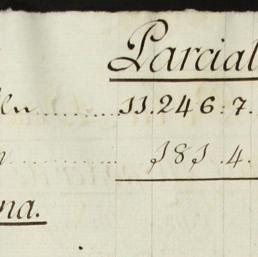 Parcial
11.246.7.
181.4.
na.